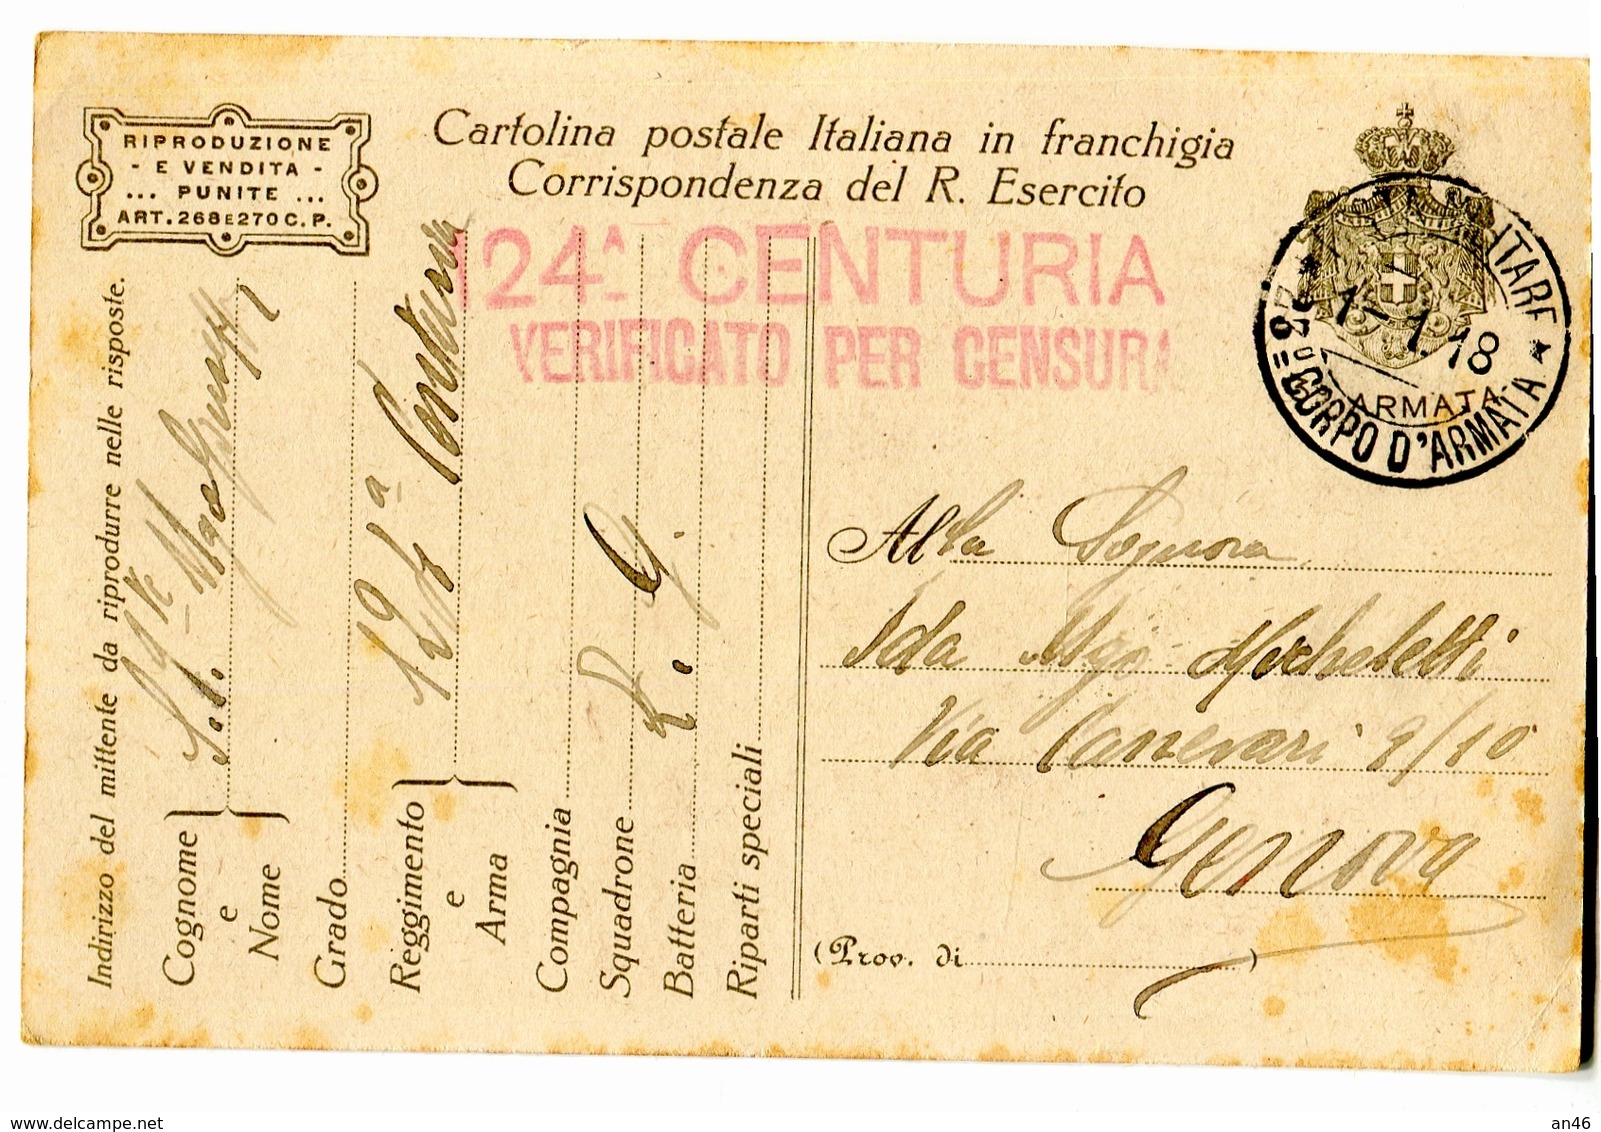 RIPRODUZIONE
- E VENDITA -
... PUNITE ...
ART. 268 E 270 C. P.
Cartolina postale Italiana in franchigia
Corrispondenza del R. Esercito
124ᴬ CENTURIA
VERIFICATO PER CENSURA
ITARE
15.1.18
ARMATA
CORPO D'ARMATA
Indirizzo del mittente da riprodurre nelle risposte.
Cognome
e
Nome
Grado
Reggimento
e
Arma
124ª Centuria
Compagnia
Squadrone
Batteria
Riparti speciali
Alla Signora
Ida Ugo Mocheletti
Via Canevari 9/10
Genova
(Prov. di )
delcampe.net
an46